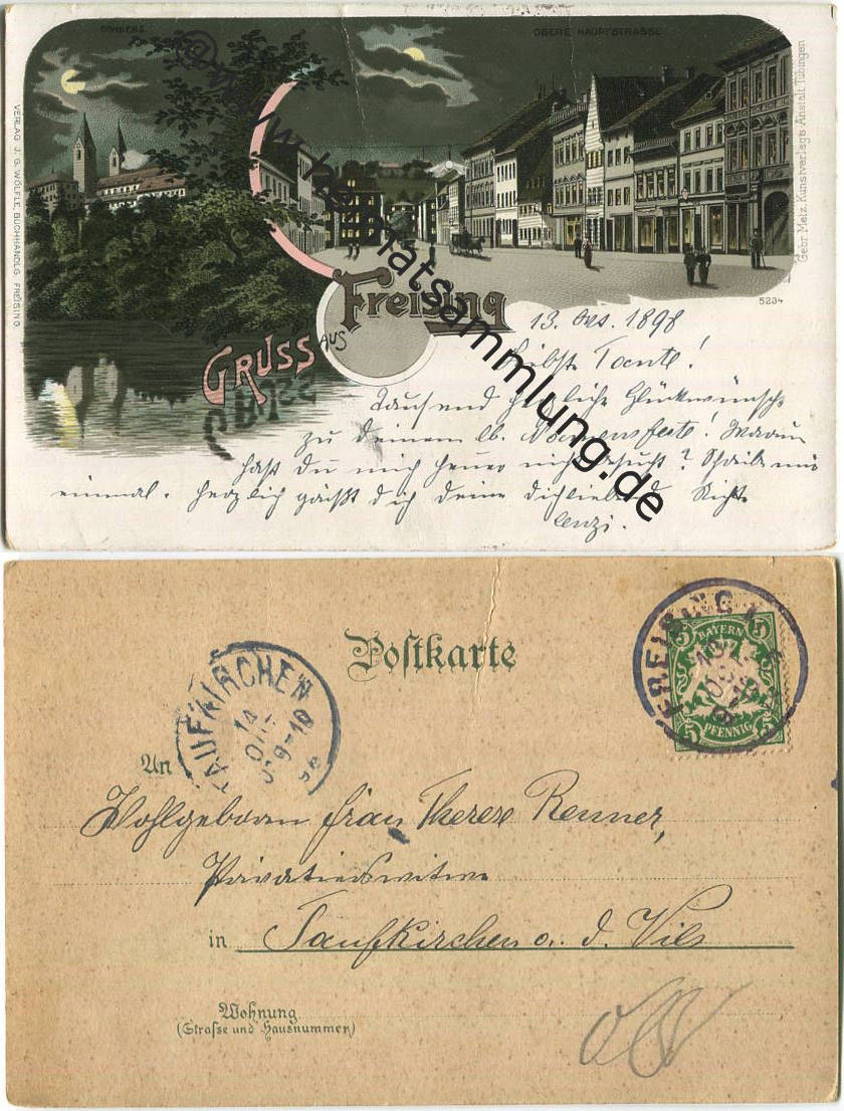 DOMBERG
OBERE HAUPTSTRASSE
VERLAG J. G. WÖLFLE, BUCHHANDLG. FREISING
Gebr. Metz, Kunstverlags-Anstalt, Tübingen
5234
GRUSS AUS Freising
www.heimatsammlung.de
13. Oct. 1898
Liebste Tante!
Tausend herzliche Glückwünsche
zu deinem lb. Namensfeste! Warum
hast du mich heuer nicht besucht? Schreib mir
einmal. Herzlich grüßt dich deine dichliebende Nichte
Cenzi.
Postkarte
FREISING
BAYERN
5 5
PFENNIG
TAUFKIRCHEN
14
OKT
9-10
98
An
Wohlgeboren Frau Therese Renner,
Privatierswitwe
in Taufkirchen a. d. Vils
Wohnung
(Strasse und Hausnummer)